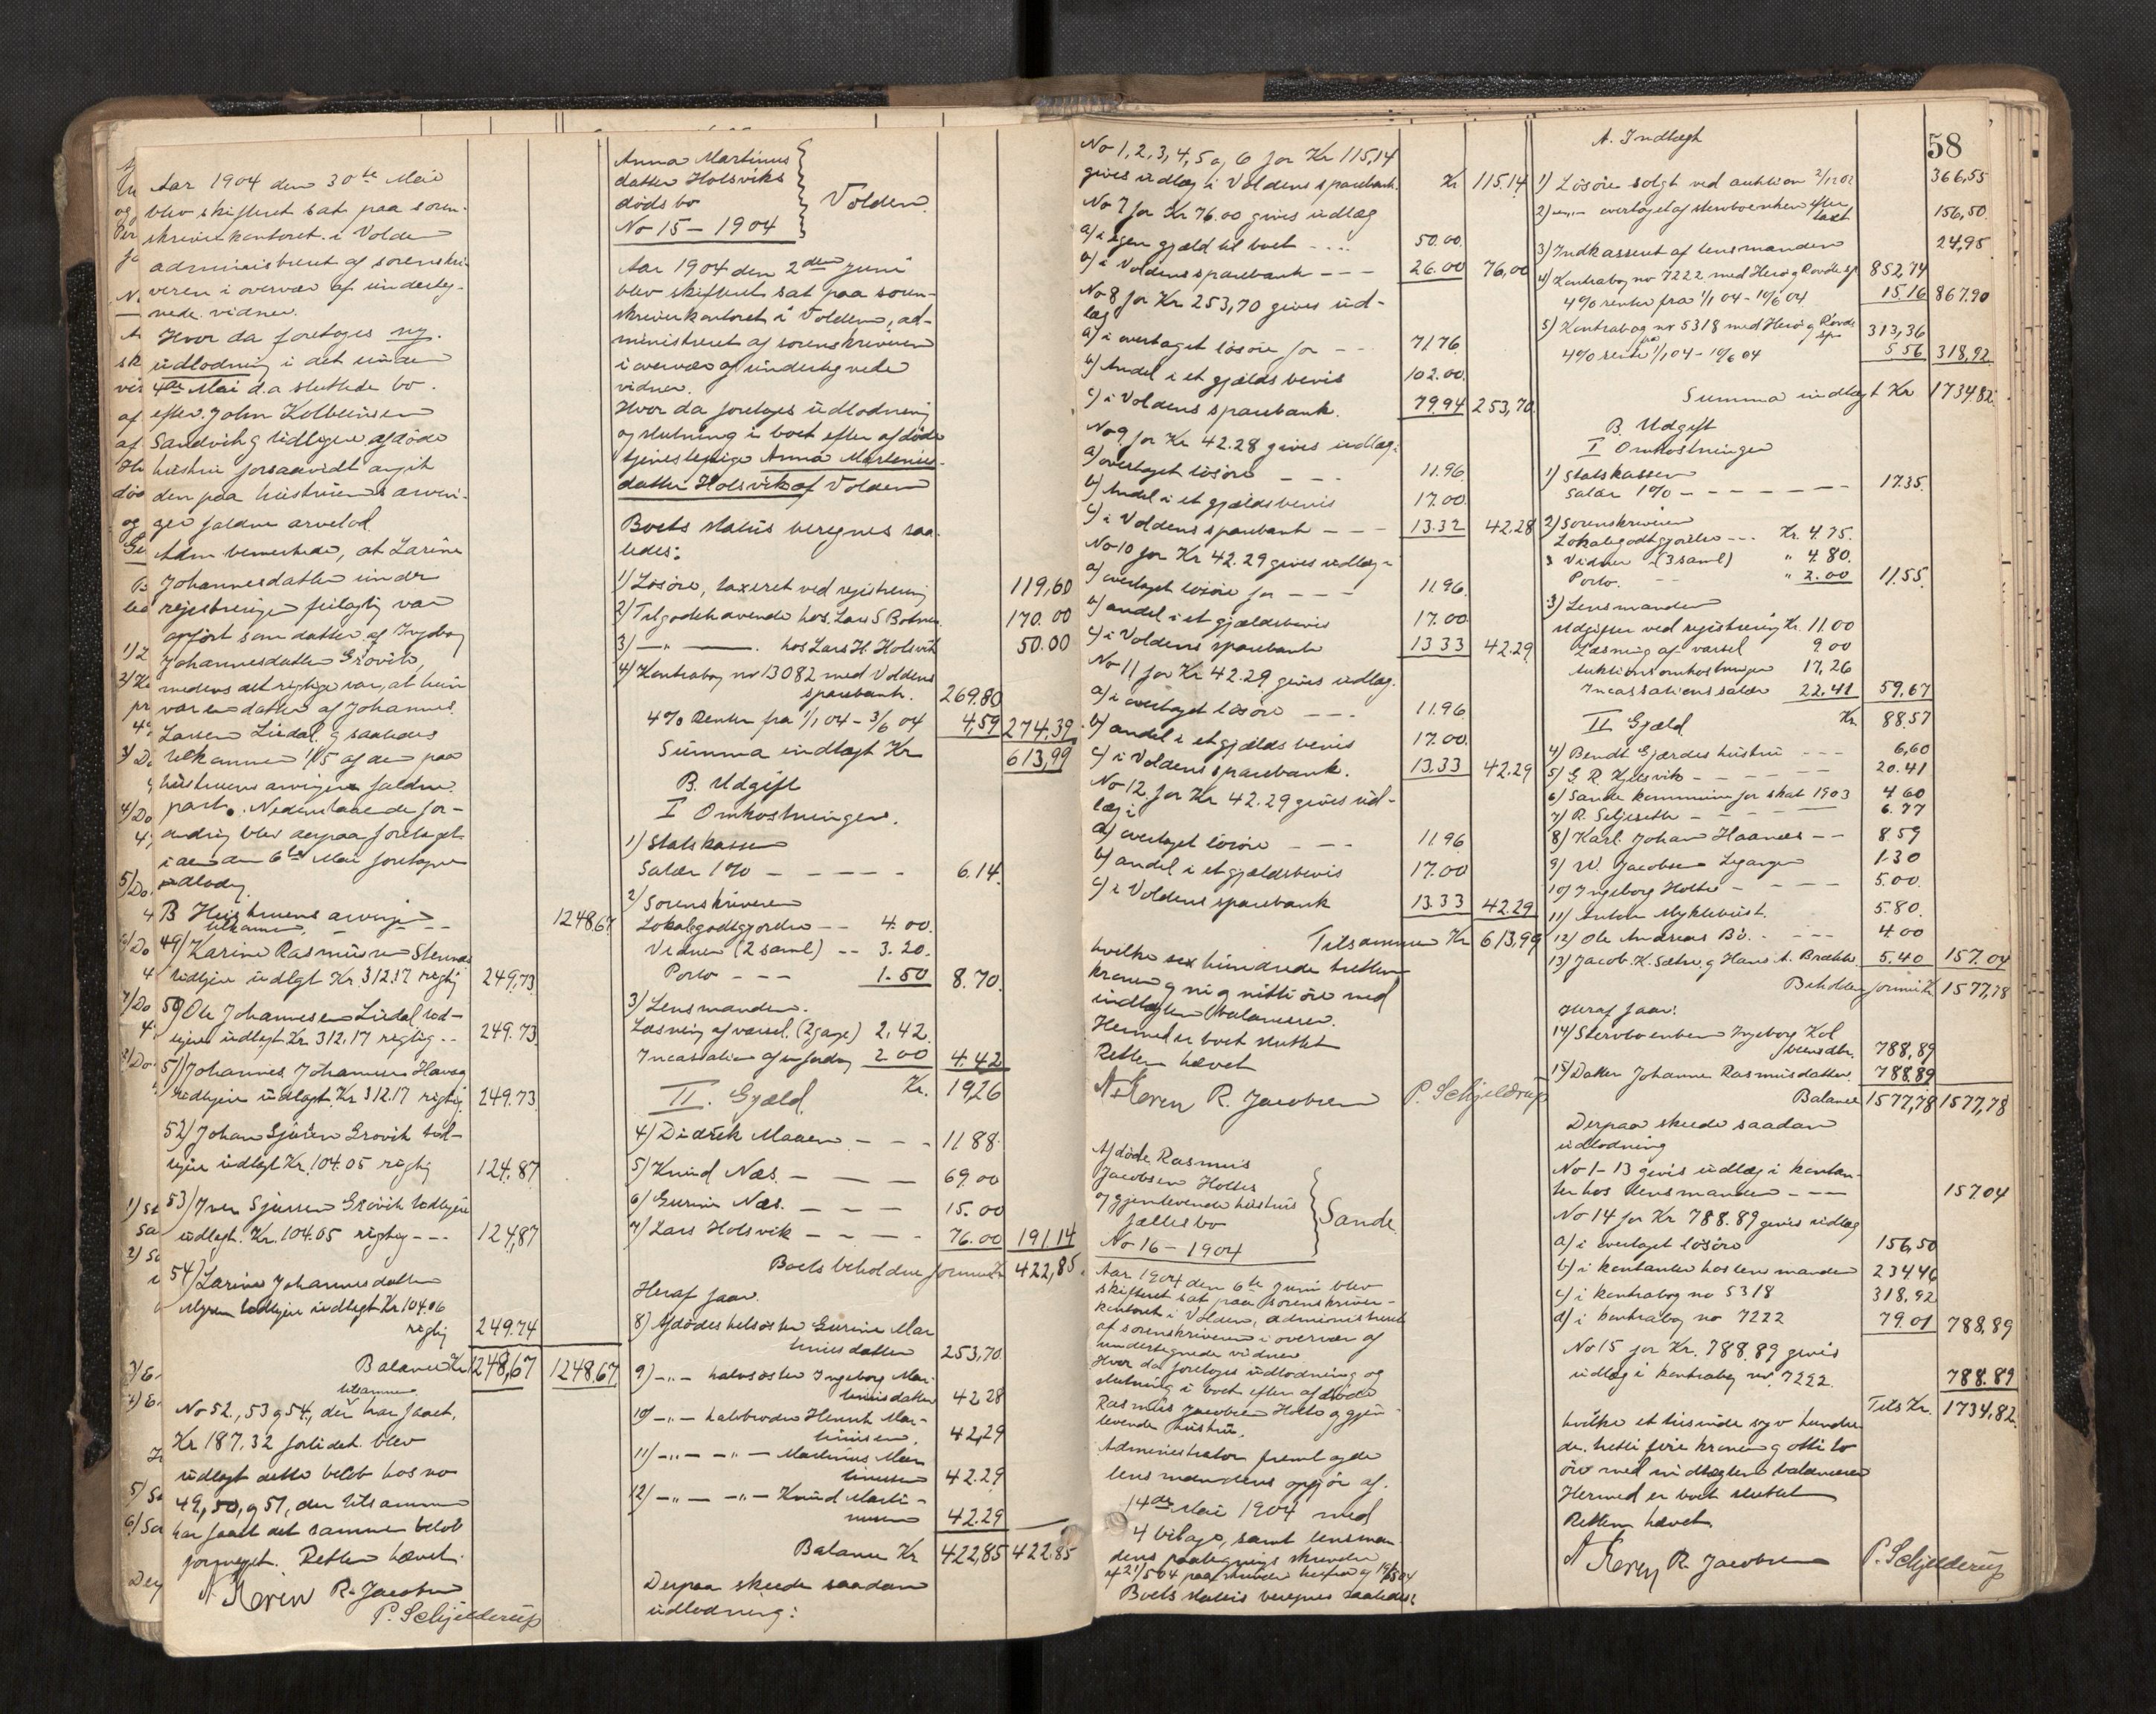 Aar 1904 den 30te Mai
blev skifteret sat paa soren-
skriverkontoret i Volden
administreret af sorenskri-
veren i overvær af underteg-
nede vidner.
Hvor da foretoges ny
udlodning i det under
4de Mai d.a sluttede bo
efter John Kolbeinsen
Sandvik og tidligere afdøde
hustru forsaavidt angik
den paa hustruens arvin-
ger faldne arvelod
Adm bemerkede, at Larine
Johannesdatter under
registreringen feilagtig var
opført som datter af Ingeborg
Johannesdatter Grøvik,
medens det rigtige var, at hun
var en datter af Johannes
Larsen Liedal og saaledes
tilkommer 1/5 af den paa
hustruens arvinger faldne
part. Nedenstaaende for-
andring blev derpaa foretaget
i den den 6te Mai foretagne
udlodng.
B Hustruens arvinger
tilkommer 1248.67
49) Karine Rasmusen Stennes
lodeier udlgt Kr. 312.17 rigtig 249.73
50) Ole Johannesen Liedal lod-
eier udlagt Kr 312.17 rigtig 249.73
51) Johannes Johannesen Havåg
lodeier udlagt Kr 312.17 rigtig 249.73
52) Johan Sjursen Grøvik lod-
eier udlagt Kr. 104.05 rigtig 124.87
53) Iver Sjursen Grøvik lodeier
udlagt Kr. 104.05 rigtig --- 124,87
54) Larine Johannesdatter
Myren lodeier udlagt Kr 104.06
rigtig 249.74
Balance Kr 1248,67 1248.67
No 52., 53 og 54, der tilsammen har faaet
Kr 187.32 forlidet blev
udlagt dette beløb hos no
49, 50, og 51, der tilsammen
har faaet det samme beløb
formeget. Retten hævet.
R. Jacobsen
P. Schjelderup
Anna Martinus
datter Holsviks
dødsbo
No 15 - 1904
Volden
Aar 1904 den 2den Juni
blev skifteret sat paa soren-
skriverkontoret i Volden, ad-
ministreret af sorenskriveren
i overvær af undertegnede
vidner.
Hvor da foretoges udlodning
og slutning i boet efter afdøde
tjenestepige Anna Martinus-
datter Holsvik af Volden
Boets status beregnes saa-
ledes:
1) Løsøre, taxeret ved registrering 119,60
2) Tilgodehavende hos Lars S Botnen 170.00
3) -"- --- hos Lars H. Holsvik 50.00
4) Kontrabog nr 13082 med Voldens
sparebank. 269.80
4% Renter fra 1/1 04 - 3/6 04 4,59 274,39
Summa indtægt Kr 613,99
B. Udgift
I Omkostninger.
1) Statskassen
Salær 1% - - - - - 6.14
2) Sorenskriveren
Lokalegodtgjørelse -- 4.00.
Vidner (2 saml) -- 3.20.
Porto --- 1.50 8.70
3) Lensmanden.
Læsning af varsel (2 gange) 2,42
Incassation af en fordrg 2.00 4.42
Kr. 19,26
II. Gjæld
4) Didrik Maaen - - - 11 88
5) Knud Næs. - - - 69.00
6) Gurine Næs. - - - 15.00
7) Lars Holsvik - - - - 76.00 191 14
Boets beholdne formue Kr 422,85.
Heraf faar
8) Afdødes helsøster Gurine Mar
tinusdatter 253,70
9) -"- halvsøster Ingeborg Mar-
tinusdatter 42 28
10) -"- halvbroder Henrik Mar-
tinusen, 42,29
11) -"- -"- Martinus Mar
tinusen 42.29
12) -"- -"- Knud Marti-
nusen 42.29
Balance Kr 422,85 422.85
Derpaa skede saadan
udlodning:
No 1, 2, 3, 4, 5 og 6 for Kr 115,14
gives udlæg i Voldens sparebank. Kr 115.14
No 7 for Kr 76.00 gives udlæg
a) i egen gjæld til boet .... 50.00.
b) i Voldens sparebank --- 26.00 76,00
No 8 for Kr 253,70 gives ud-
læg
a) i overtaget løsøre for -- 71 76
b) Andel i et gjældsbevis 102.00.
c) i Voldens sparebank. 79.94 253,70
No 9 for Kr 42.28 gives udlæg:
a) overtaget løsøre --- 11.96.
b) Andel i et gjældsbevis 17.00.
c) i Voldens sparebank -- 13.32 42.28
No 10 for Kr 42.29 gives udlæg:
a) overtaget løsøre for --- 11.96.
b) andel i et gjældsbevis 17.00.
c) i Voldens sparebank 13 33 42.29
No 11 for Kr 42.29 gives udlæg.
a) i overtaget løsøre --- 11.96.
b) andel i et gjældsbevis 17.00.
c) i Voldens sparebank. 13.33 42.29
No 12 for Kr 42.29 gives ud-
læg i
a) overtaget løsøre --- 11.96
b) andel i et gjældsbevis 17.00
c) i Voldens sparebank 13.33 42.29
Tilsammen Kr 613,99
hvilke sex hundrede tretten
kroner og ni og nitti øre med
indtægten balancerer.
Hermed er boet sluttet
Retten hævet
R. Jacobsen P. Schjelderup
Afdøde Rasmus
Jacobsen Holtes
og gjenlevende hustrus
fællesbo
No 16 - 1904
Sande
Aar 1904 den 6te Juni blev
skifteret sat paa sorenskriver-
kontoret i Volden, administreret
af sorenskriveren i overvær af
undertegnede vidner
Hvor da foretoges udlodning og
slutning i boet efter afdøde
Rasmus Jacobsen Holte og gjen-
levende hustru.
Administrator fremlagde
lensmandens opgjør af
14de Mai 1904 med
4 bilage, samt lensman-
dens paategnings skrivelse
Boets status beregnes saaledes:
58
A. Indtægt
1) Løsøre solgt ved auktion 366,55
2) -"- overtaget af stervboenken efter
taxt 156,50.
3) Indkasseret af lensmanden 24,95
4) Kontrabog no 7222 med Herø og Røvde sp 852,74
4% renter fra 1/1 04 - 10/6 04 15.16 867.90
5) Kontrabog nr 5318 med Herø og Røvde
sp 313,36
4% rente fra 1/1 04 - 10/6 04 5 56 318,92
Summa indtægt Kr 1734,82.
B. Udgift
I Omkostninger
1) Statskassen
Salær 1% - - - - - - 17.35.
2) Sorenskriveren
Lokalegodtgjørelse --- Kr. 4.75.
3 Vidner (3 saml) " 4.80.
Porto. -- " 2.00 11.55.
3) Lensmanden
Udgifter ved registrering Kr. 11 00
Læsning af varsel 9 00
Auktionsomkostninger 17,26
Incassationssalær 22,41 59,67
Kr. 88,57
II Gjæld
4) Bendt Gjærdes hustru --- 6,60
5) G. R. Kjelsvik - - - - 20.41
6) Sande kommune for skat 1903 4 60
7) R. Seljeseth - - - - 6.77
8) Karl Johan Haanes -- 8 59
9) W. Jacobsen 1.30
10) Ingeborg Holte - - - - 5.00.
11) Anton Myklebust. 5.80.
12) Ole Andreas Bø. - --- 4.00
13) Jacob. K. Sætre og Hans A. Brække 5.40 157.04
Beholden formue Kr 1577,78
Heraf faar:
14) Stervboenken Ingeborg Kol
beinsdtr. 788,89
15) Datter Johanne Rasmusdatter 788.89
Balance 1577,78 1577,78
Derpaa skede saadan
udlodning
No 1-13 gives udlæg i kontan-
ter hos lensmanden --- 157 04
No 14 for Kr 788.89 gives udlæg
a) i overtaget løsøre 156,50
b) i kontanter hos lensmanden 234.46
c) i kontrabog no 5318 318,92
d) i kontrabog no 7222 79.01 788,89
No 15 for Kr. 788.89 gives
udlæg i kontrabog nr. 7222. 788.89
Tils Kr. 1734,82.
hvilke et tusinde syv hundre
de tretti fire kroner og otti to
øre med indtægten balancerer
Hermed er boet sluttet
Retten hævet.
R. Jacobsen P. Schjelderup